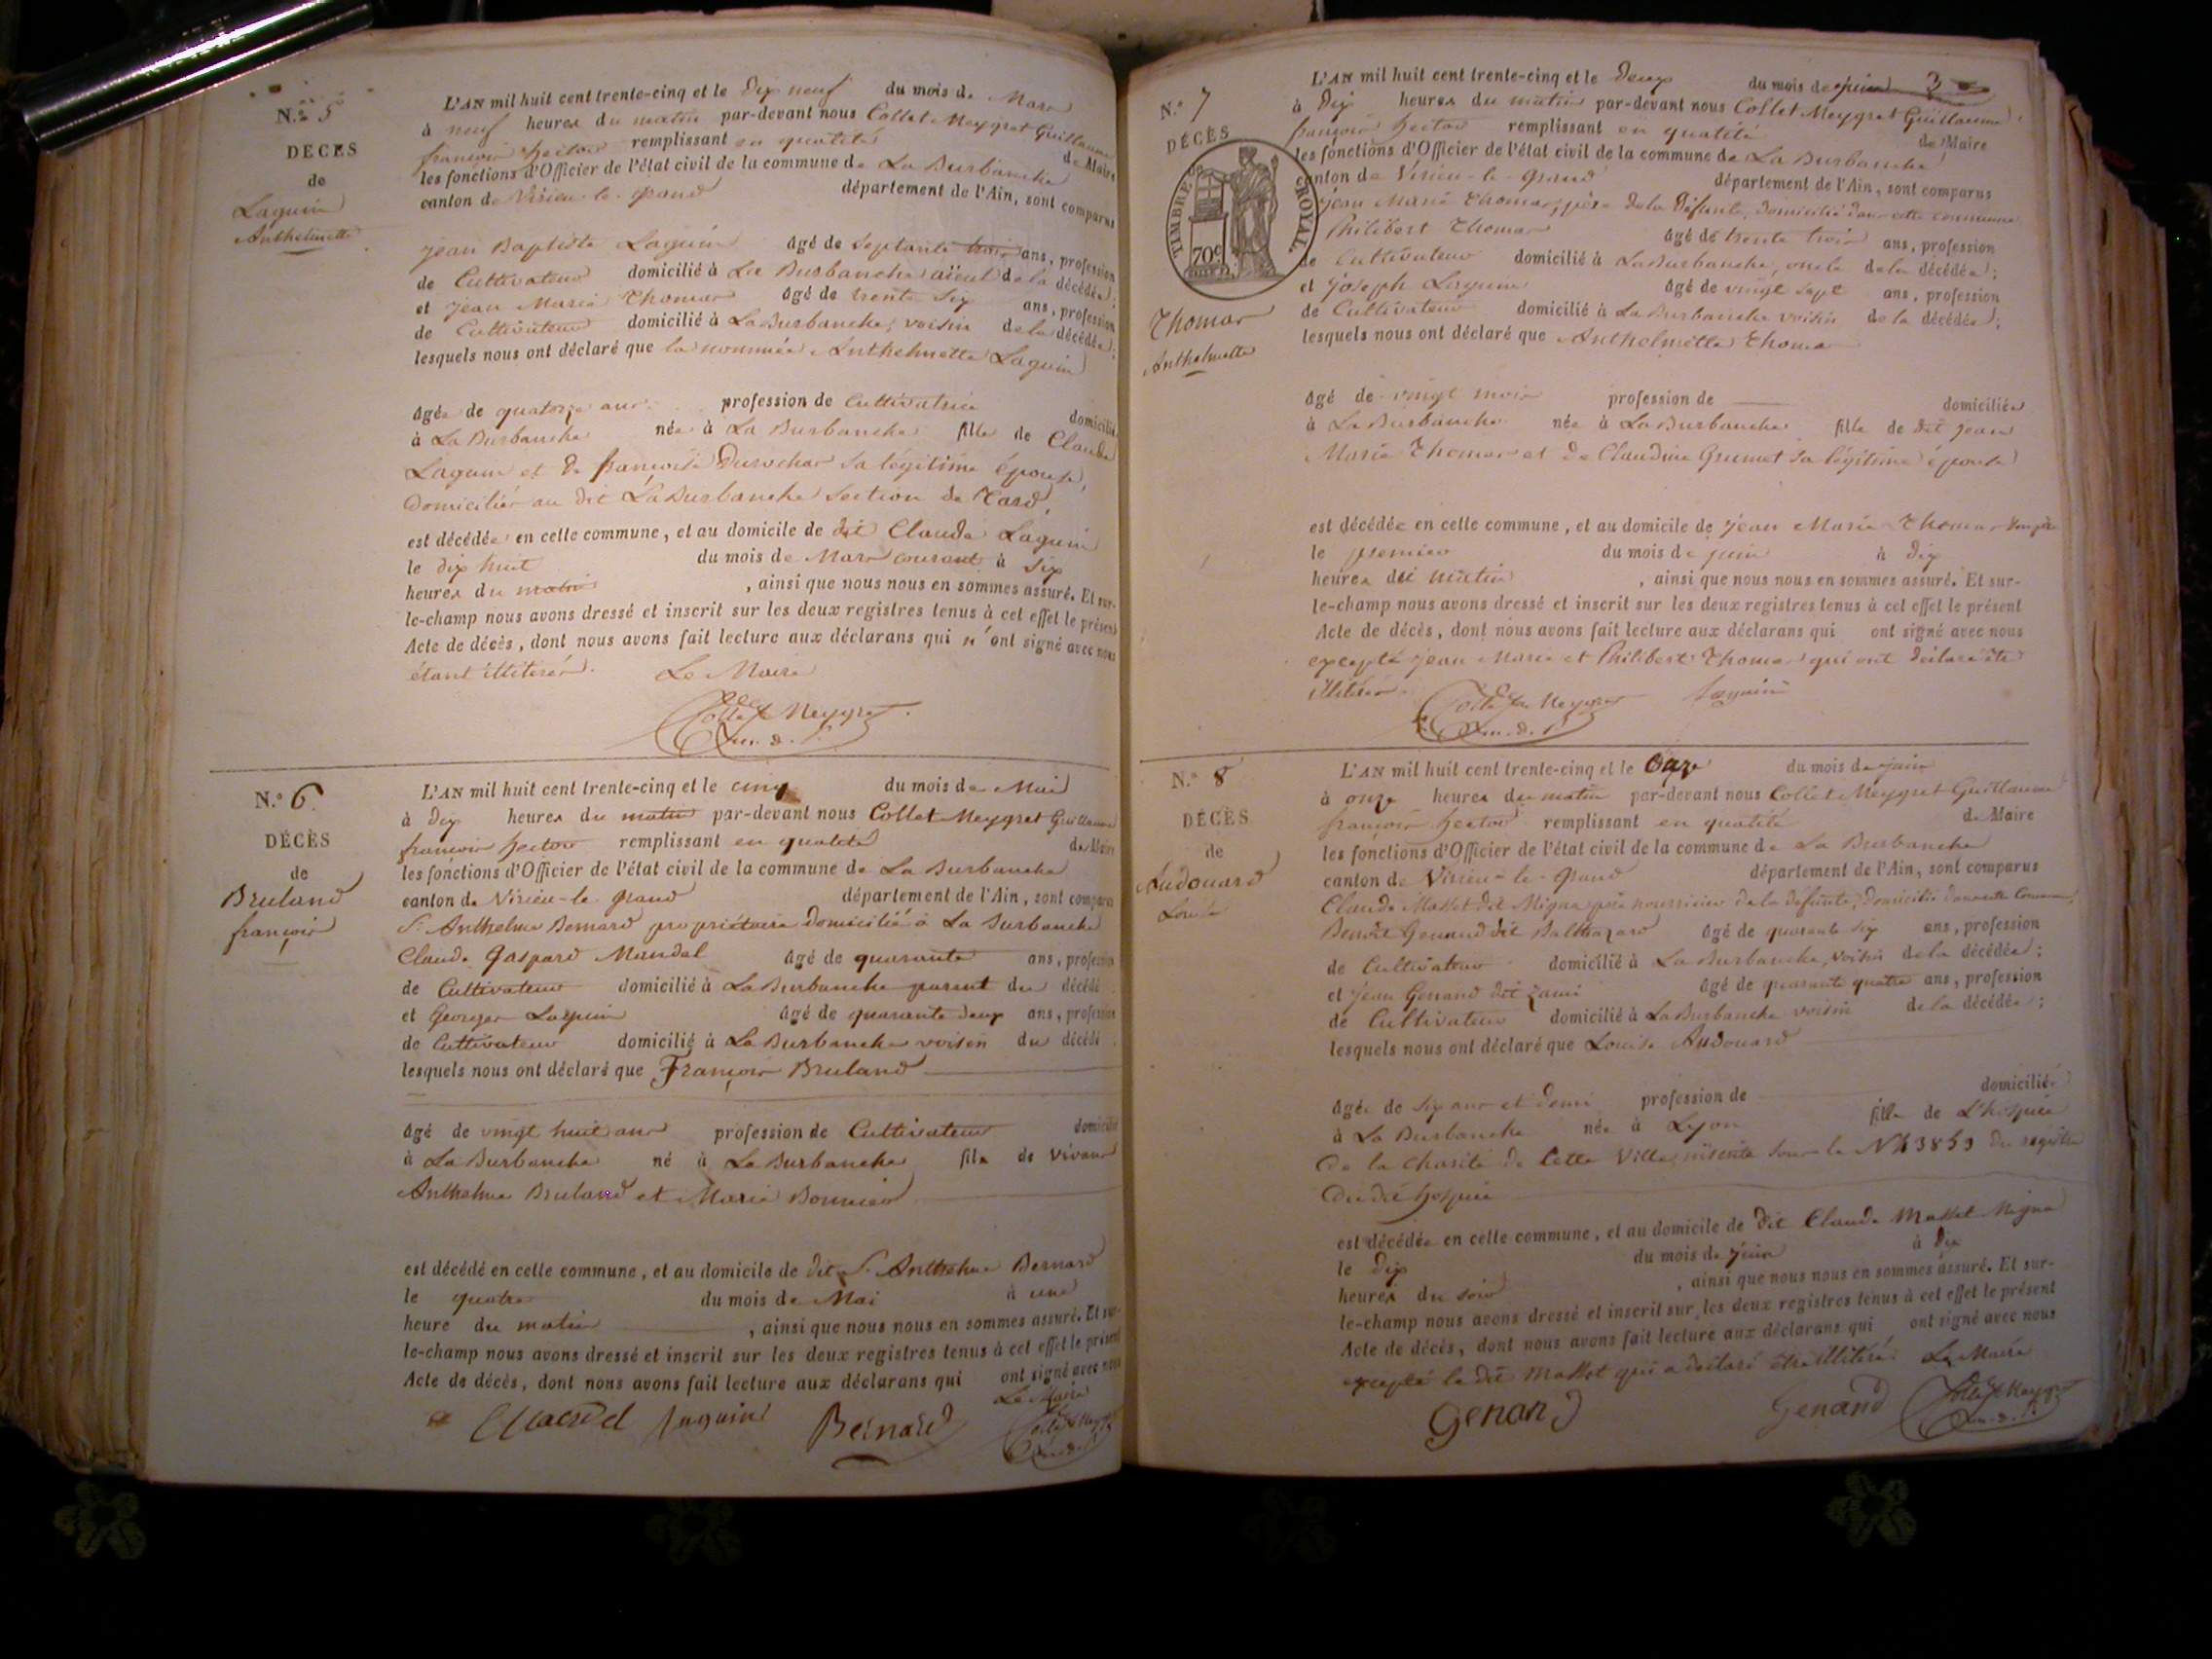 N.º 5
DÉCÈS
de
Laguin
Anthelmette
L'AN mil huit cent trente-cinq et le Dix neuf du mois de Mars
à neuf heures du matin par-devant nous Collet Meygret Guillaume
françois hector remplissant en qualité de Maire
les fonctions d'Officier de l'état civil de la commune de La Burbanche
canton de Virieu-le-grand département de l'Ain, sont comparus
Jean Baptiste Laguin âgé de Septante trois ans, profession
de Cultivateur domicilié à La Burbanche aïeul de la décédée;
et Jean Marie Thomas âgé de trente Six ans, profession
de Cultivateur domicilié à La Burbanche, voisin de la décédée;
lesquels nous ont déclaré que la nommée Anthelmette Laguin
âgée de quatorze ans profession de Cultivatrice domiciliée
à La Burbanche née à La Burbanche fille de Claude
Laguin et de françoise Durochar sa légitime épouse,
Domiciliés au dit La Burbanche Section de Tard,
est décédée en cette commune, et au domicile de dit Claude Laguin
le dix huit du mois de Mars courant à six
heures du matin, ainsi que nous nous en sommes assuré. Et sur-
le-champ nous avons dressé et inscrit sur les deux registres tenus à cet effet le présent
Acte de décès, dont nous avons fait lecture aux déclarans qui n'ont signé avec nous
étant illitérés. Le Maire
Collet Meygret
N.º 6
DÉCÈS
de
Bruland
françois
L'AN mil huit cent trente-cinq et le cinq du mois de Mai
à Dix heures du matin par-devant nous Collet Meygret Guillaume
françois hector remplissant en qualité de Maire
les fonctions d'Officier de l'état civil de la commune de La Burbanche
canton de Virieu-le-grand département de l'Ain, sont comparus
S. Anthelme Bernard propriétaire domicilié à La Burbanche
Claude Gaspard Mandel âgé de quarante ans, profession
de Cultivateur domicilié à La Burbanche parent du décédé
et Georges Laguin âgé de quarante deux ans, profession
de Cultivateur domicilié à La Burbanche voisin du décédé
lesquels nous ont déclaré que François Bruland
âgé de vingt huit ans profession de Cultivateur domicilié
à La Burbanche né à La Burbanche fils de vivans
Anthelme Bruland et Marie Bonnier
est décédé en cette commune, et au domicile de dit S. Anthelme Bernard
le quatre du mois de Mai à une
heure du matin, ainsi que nous nous en sommes assuré. Et sur-
le-champ nous avons dressé et inscrit sur les deux registres tenus à cet effet le présent
Acte de décès, dont nous avons fait lecture aux déclarans qui ont signé avec nous
Le Maire
Laguin Bernard
N.º 7
DÉCÈS
TIMBRE ROYAL
70c
Thomas
Anthelmette
3
L'AN mil huit cent trente-cinq et le Deux du mois de juin
à Dix heures du matin par-devant nous Collet Meygret Guillaume
françois hector remplissant en qualité de Maire
les fonctions d'Officier de l'état civil de la commune de La Burbanche
canton de Virieu-le-grand département de l'Ain, sont comparus
Jean Marie Thomas, père de la défunte, domicilié dans cette commune
Philibert Thomas âgé de trente trois ans, profession
de Cultivateur domicilié à La Burbanche, oncle de la décédée;
et Joseph Laguin âgé de vingt sept ans, profession
de Cultivateur domicilié à La Burbanche voisin de la décédée;
lesquels nous ont déclaré que Anthelmette Thomas
âgé de vingt mois profession de domiciliée
à La Burbanche née à La Burbanche fille de dit Jean
Marie Thomas et de Claudine Grumet sa légitime épouse
est décédée en cette commune, et au domicile de Jean Marie Thomas son père
le premier du mois de juin à dix
heures du matin, ainsi que nous nous en sommes assuré. Et sur-
le-champ nous avons dressé et inscrit sur les deux registres tenus à cet effet le présent
Acte de décès, dont nous avons fait lecture aux déclarans qui ont signé avec nous
excepté Jean Marie et Philibert Thomas qui ont déclaré être
illitérés. Collet Meygret Laguin
N.º 8
DÉCÈS
de
Audouard
Louise
L'AN mil huit cent trente-cinq et le Onze du mois de juin
à onze heures du matin par-devant nous Collet Meygret Guillaume
françois hector remplissant en qualité de Maire
les fonctions d'Officier de l'état civil de la commune de La Burbanche
canton de Virieu-le-grand département de l'Ain, sont comparus
Claude Mallet dit Migna père nourricier de la défunte, domicilié dans cette Commune,
Benoît Genand dit Balthazard âgé de quarante six ans, profession
de Cultivateur domicilié à La Burbanche, voisin de la décédée;
et Jean Genand dit âgé de quarante quatre ans, profession
de Cultivateur domicilié à La Burbanche voisin de la décédée;
lesquels nous ont déclaré que Louise Audouard
âgée de six ans et demi profession de domiciliée
à La Burbanche née à Lyon fille de L'hospice
de la charité de Cette Ville, inscrite sous le N.º 43859 du registre
du dit hospice
est décédée en cette commune, et au domicile de dit Claude Mallet Migna
le dix du mois de juin à dix
heures du soir, ainsi que nous nous en sommes assuré. Et sur-
le-champ nous avons dressé et inscrit sur les deux registres tenus à cet effet le présent
Acte de décès, dont nous avons fait lecture aux déclarans qui ont signé avec nous
excepté le dit Mallet qui a déclaré être illitéré. Le Maire
Genand Genand Collet Meygret